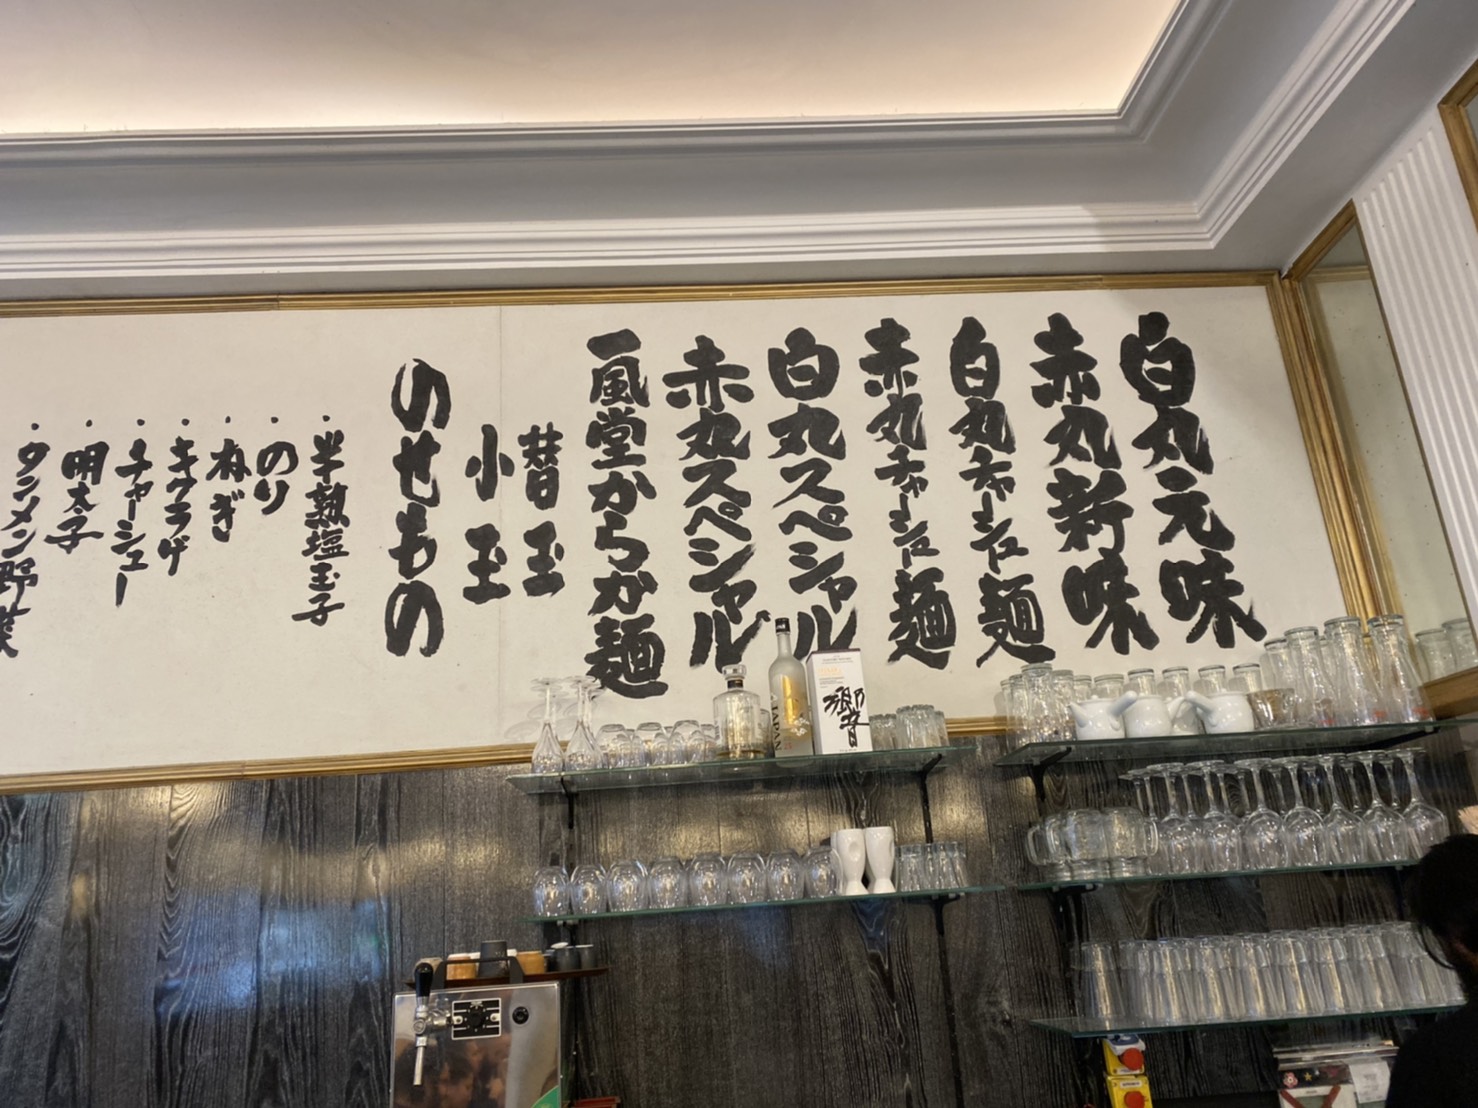 白丸元味
赤丸新味
白丸チャーシュー麺
赤丸チャーシュー麺
白丸スペシャル
赤丸スペシャル
一風堂からか麺
替玉
小玉
のせもの
・半熟塩玉子
・のり
・ねぎ
・キクラゲ
・チャーシュー
・明太子
・タンメン野菜
響
JAPAN